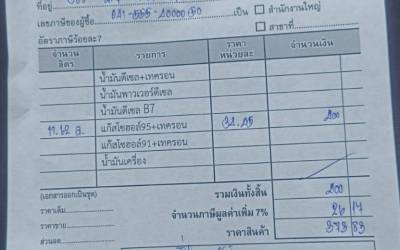 ที่อยู่
เลขภาษีของผู้ซื้อ เป็น สำนักงานใหญ่
อัตราภาษีร้อยละ7 สาขาที่
จำนวนลิตร รายการ ราคาหน่วยละ จำนวนเงิน
น้ำมันดีเซล+เทครอน
น้ำมันพาวเวอร์ดีเซล
น้ำมันดีเซล B7
แก๊สโซฮอล์95+เทครอน 200
แก๊สโซฮอล์91+เทครอน
น้ำมันเครื่อง
(เอกสารออกเป็นชุด) รวมเงินทั้งสิ้น 200
ราคาเต็ม จำนวนภาษีมูลค่าเพิ่ม 7% 26 17
ราคาขาย ราคาสินค้า 373 83
ส่วนลด